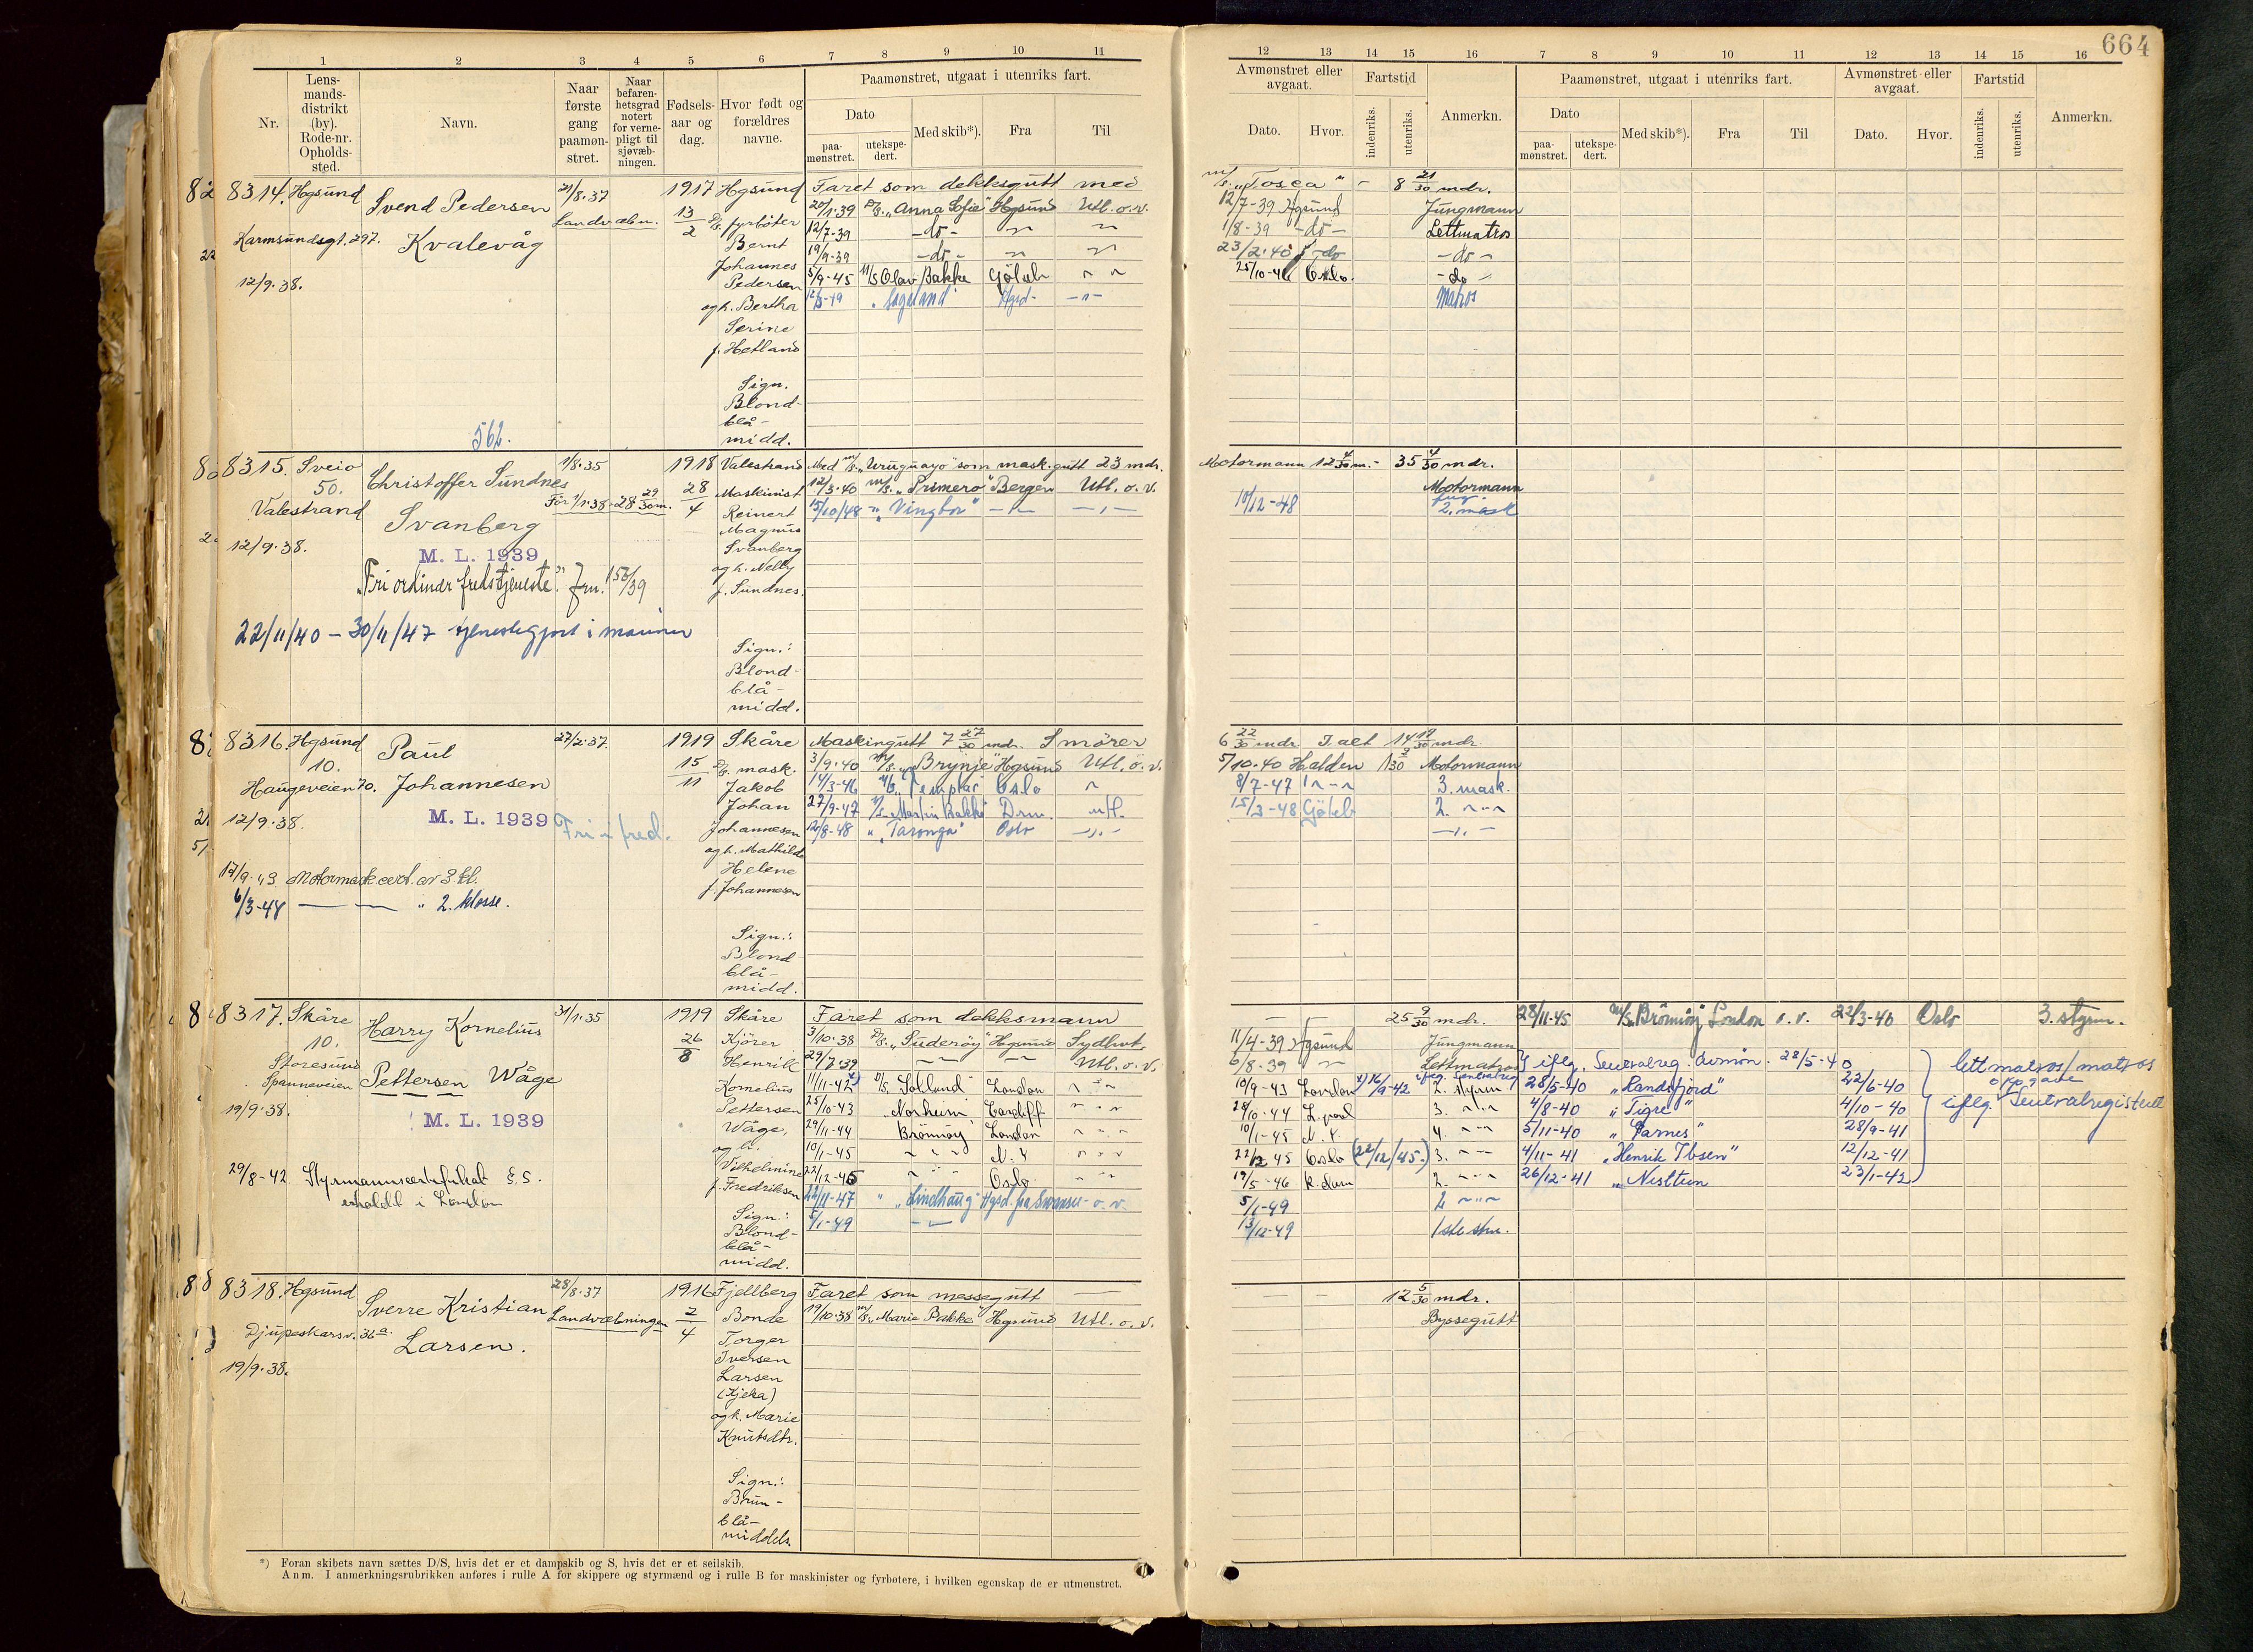 664
1 2 3 4 5 6 7 8 9 10 11
Lensmandsdistrikt (by). Rode-nr. Opholdssted.
Nr.
Navn.
Naar første gang paamønstret.
Naar befarenhetsgrad notert for vernepligt til sjøvæbningen.
Fødselsaar og dag.
Hvor født og forældres navne.
Paamønstret, utgaat i utenriks fart.
Dato
paamønstret.
utekspedert.
Med skib*).
Fra
Til
12 13 14 15 16 7 8 9 10 11 12 13 14 15 16
Avmønstret eller avgaat.
Dato.
Hvor.
Fartstid
indenriks.
utenriks.
Anmerkn.
Paamønstret, utgaat i utenriks fart.
Dato
paamønstret.
utekspedert.
Med skib*).
Fra
Til
Avmønstret eller avgaat.
Dato.
Hvor.
Fartstid
indenriks.
utenriks.
Anmerkn.
8314. Hgsund 21/8.37 1917 Hgsund Faret som dekksgutt med
Svend Pedersen Landvæbn. 13/2 D/S. fyrbøter 20/1.39 D/S. "Anna Sofie" Hgsund Utl. o.v.
Karmsundsgt. 297. Kvalevåg Bernt 12/7-39 -do-
Johannes 19/9-39 -do-
12/9.38. Pedersen 5/9-45 M/S Olav Bakke Göteb
og h. Bertha 12/3-49 "Sageland" Hgsd -"-
Serine
f. Hetland
Sign.
Blond-
blå-
midd.
562.
M/S. "Tosca" - 8 21/30 mdr.
12/7-39 Hgsund Jungmann
1/8-39 -do- Lettmatros
23/2.40 -do- -do-
25/10-46 Oslo. -do-
Matros
8315. Sveio 1/8.35 1918 Valestrand Med M/S. "Uruguayo" som mask.gutt 23 mdr.
50. Christoffer Sundnes 28/4 Maskinist 12/3.40 M/S. "Primero" Bergen Utl. o.v.
Valestrand Før 1/1.38-28 29/30 m. Reinert 15/10/48 "Vingtor" -"- -"-
Svanberg Magnus
12/9.38. Svanberg
M. L. 1939 og h. Nelly
"Fri ordinær fredstjeneste". Jrn. 156/39 f. Sundnes.
22/11/40 - 30/11/47 tjenestegjort i marinen
Sign.:
Blond-
blå-
midd.
Motormann 12 4/30 m. - 35 4/30 mdr.
Motormann
10/12-48 2. mask
8316 Hgsund 27/2.37. 1919 Skåre Maskingutt 7 27/30 mdr. Smører
10. Paul 15/11 D/S. mask. 3/9.40 M/S. "Brynje" Hgsund Utl. o.v.
Haugeveien 70. Johannesen Jakob 14/3-46 M/S "Templar" Oslo
Johan 27/9-47 M/S "Martin Bakke" Drm. utl.
12/9.38. M. L. 1939 Fri i fred. Johannesen 12/8-48 "Taronga" Oslo -"-
og h. Mathilde
Helene
17/9.43 Motormask cert. av 3. kl. f. Johannesen
6/3-48 " 2. klasse.
Sign.:
Blond-
blå-
midd.
6 22/30 mdr. I alt 14 19/30 mdr.
5/10.40 Halden Motormann
8/7-47 3. mask.
15/3-48 Göteb 2. -"-
-"-
8317. Skåre 31/1.35 1919 Skåre Faret som dekksmann
10. Harry Kornelius 26/8 Kjører 3/10.38 D/S. "Suderøy" Hgsund Sydhvt.
Storesund Henrik 29/7.39 Utl. o.v.
Spanneveien Pettersen Våge Kornelius 11/11-42 D/S. "Solland" London
19/9.38. Pettersen 25/10-43 "Norheim" Cardiff
M. L. 1939 Våge, 29/11-44 Brönnöy London
og h. 10/1-45 N.Y
29/8-42 Styrmannscertifikat Vilhelmine 22/12-45 Oslo
erholdt i London f. Fredriksen 22/11-47 "Lindhaug" Hgsd. fra Swansea o.v.
Sign.: 5/1-49
Blond-
blå-
midd.
25 9/30 mdr. 28/11-45 M/S "Brönnöy" London o.v. 22/3-46 Oslo 3. styrm.
11/4-39 Hgsund Jungmann
6/8-39 Lettmatros iflg. Sentralreg. avmøn. 28/5-40
10/9-43 London 16/9-42 2. styrm 28/5-40 "Randsfjord" 22/6-40 lettmatros/matros
28/10-44 L.pool 3. -"- 4/8-40 "Tigre" 4/10-40 oppgave
10/1-45 N.Y. 4. -"- 5/11-40 "Garnes" 28/9-41 iflg. Sentralregisteret
22/12 45 Oslo (22/12/45.) 3. -"- 4/11-41 "Henrik Ibsen" 12/12-41
19/5-46 K.dam 2. -"- 26/12-41 "Nesttun" 23/1-42
5/1-49 2 -"-
13/12-49 1ste stm.
8318. Hgsund 28/8.37 1916 Fjellberg Faret som messegutt
Sverre Kristian Landvæbningen 2/4 Bonde 19/10.38 M/S. "Marie Bakke" Hgsund Utl. o.v.
Djupeskarsv. 36a. Larsen. Torger
Iversen
19/9.38. Larsen
(Kjeka)
og h. Marie
Knutsdtr.
Sign.:
Brun-
blå-
middels.
12 5/30 mdr.
Byssegutt
*) Foran skibets navn sættes D/S, hvis det er et dampskib og S, hvis det er et seilskib.
Anm. I anmerkningsrubrikken anføres i rulle A for skippere og styrmænd og i rulle B for maskinister og fyrbøtere, i hvilken egenskap de er utmønstret.